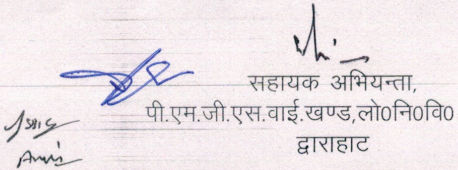 सहायक अभियन्ता,
पी.एम.जी.एस.वाई.खण्ड,लो0नि0वि0
द्वाराहाट